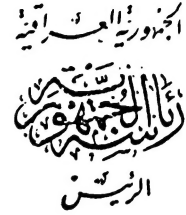 الجمهورية العراقية
رئاسة الجمهورية
الرئيس